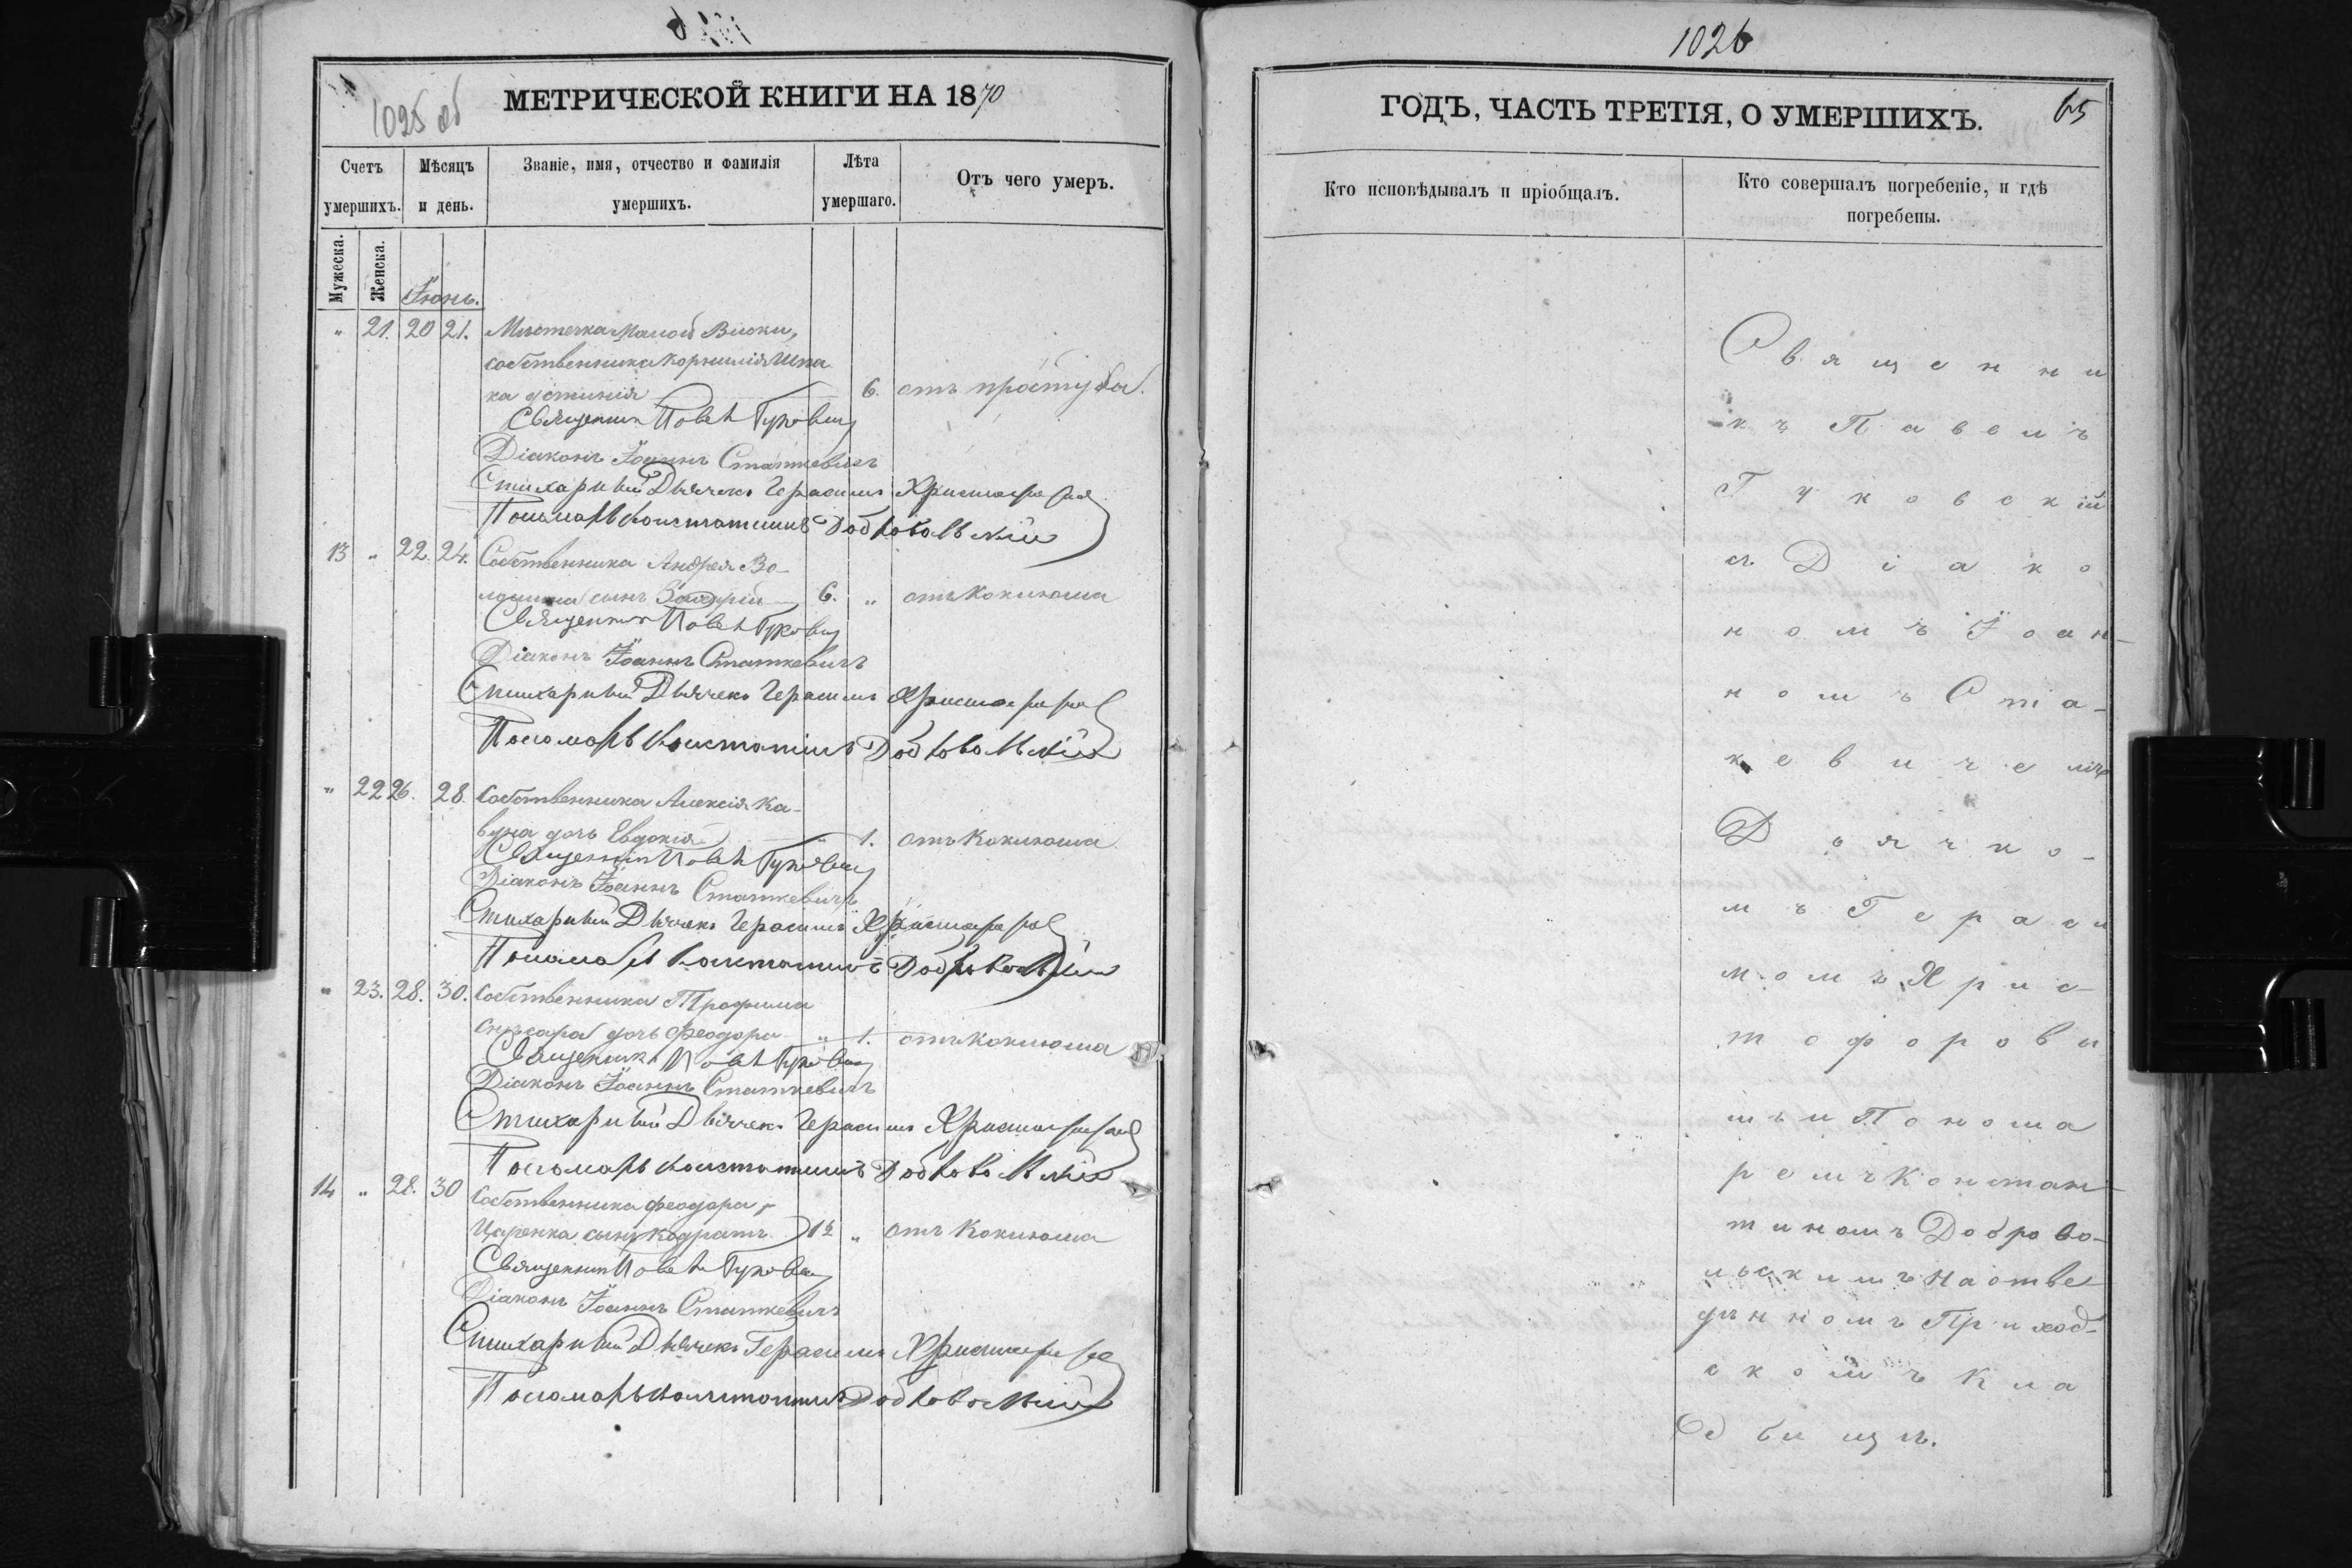 1025 об
МЕТРИЧЕСКОЙ КНИГИ НА 1870
Счетъ умершихъ.
Мѣсяцъ и день.
Званіе, имя, отчество и фамилія умершихъ.
Лѣта умершаго.
Отъ чего умеръ.
Мужеска.
Женска.
Іюнь.
" 21. 20 21. Мѣстечка Малой Виски,
собственника Корнилія Шпа
ка 6. отъ простуды.
Священник Павел Гуковский
Діаконъ Іоаннъ Статкевичъ
Стихарный Дьячекъ Герасимъ Христофоровъ
Пономарь Константинъ Добровольскій
13 " 22. 24. Собственника Андрея Во-
лошина сынъ 6. " отъ коклюша
Священник Павел Гуковский
Діаконъ Іоаннъ Статкевичъ
Стихарный Дьячекъ Герасимъ Христофоровъ
Пономарь Константинъ Добровольскій
" 22 26. 28. Собственника Алексія Ка-
вуна дочь Евдокія " 1. отъ коклюша
Священник Павел Гуковский
Діаконъ Іоаннъ Статкевичъ
Стихарный Дьячекъ Герасимъ Христофоровъ
Пономарь Константинъ Добровольскій
" 23. 28. 30. Собственника Трофима
дочь Феодора " 1. отъ коклюша
Священникъ Павел Гуковский
Діаконъ Іоаннъ Статкевичъ
Стихарный Дьячекъ Герасимъ Христофоровъ
Пономарь Константинъ Добровольскій
14 " 28. 30 Собственника Феодора
Царенка сынъ Кодратъ " отъ коклюша
Священник Павел Гуковский
Діаконъ Іоаннъ Статкевичъ
Стихарный Дьячекъ Герасимъ Христофоровъ
Пономарь Константинъ Добровольскій
1026
ГОДЪ, ЧАСТЬ ТРЕТІЯ, О УМЕРШИХЪ.
65
Кто исповѣдывалъ и пріобщалъ.
Кто совершалъ погребеніе, и гдѣ
погребены.
Священни
къ Павелъ
Гуковскій
съ Діако
номъ Іоан-
номъ Ста-
кевичемъ
Дьячко-
мъ Гераси
момъ Хрис-
тофоровы
мъ и Понома
ремъ Констан-
тиномъ Доброво-
льскимъ на отве
денномъ Приход-
скомъ Кла
дбищѣ.